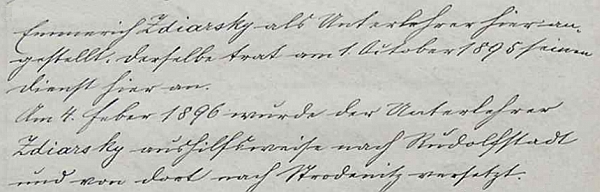 Emmerich Zdiarsky als Unterlehrer hier an-
gestellt. Derselbe trat am 1. October 1895 seinen
Dienst hier an.
Am 4. Feber 1896 wurde der Unterlehrer
Zdiarsky aushilfsweise nach Rudolfstadt
und von dort nach Strodenitz versetzt.